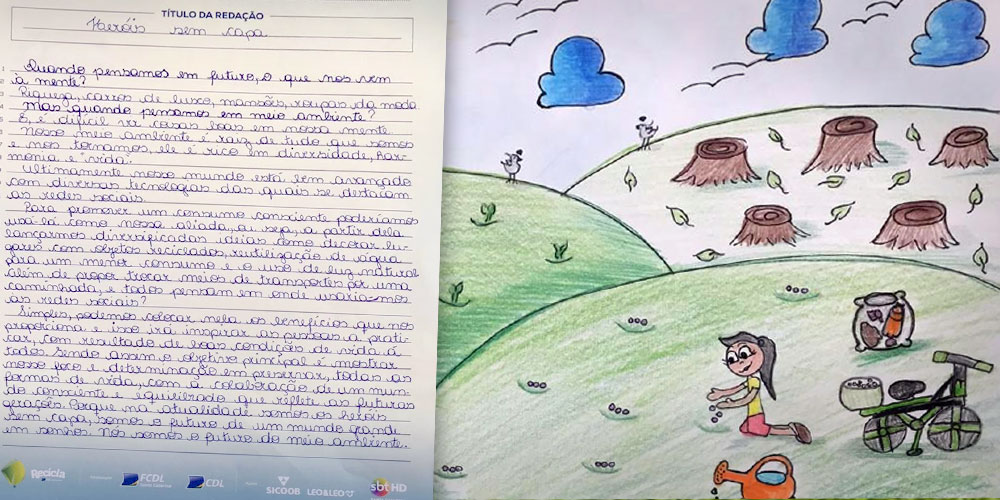 TÍTULO DA REDAÇÃO
Heróis sem capa
Quando pensamos em futuro, o que nos vem
à mente?
Riqueza, carros de luxo, mansões, roupas da moda
mas quando pensamos em meio ambiente?
É, é difícil vir coisas boas em nossa mente
Nosso meio ambiente é raiz de tudo que somos
e nos tornamos, ele é rico em diversidade, har-
monia e "vida".
Ultimamente nosso mundo está bem avançado
com diversas tecnologias das quais se destacam
as redes sociais.
Para promover um consumo consciente poderíamos
usá-la como nossa aliada, ou seja, a partir dela
lançarmos diversificadas ideias como decorar lu-
gares com objetos reciclados, reutilização de água
para um menor consumo e o uso de luz natural
além de propor trocar meios de transportes por uma
caminhada, e todos pensam em onde usaría-mos
as redes sociais?
Simples, podemos colocar nela os benefícios que nos
proporciona e isso irá inspirar as pessoas a prati-
car, com resultado de boas condições de vida á
todos. Sendo assim o objetivo principal é mostrar
nosso foco e determinação em preservar, todas as
formas de vida, com a colaboração de um mun-
do consciente e equilibrado que reflete as futuras
gerações. Porque na atualidade somos os heróis
sem capa, somos o futuro de um mundo grande
em sonhos. Nós somos o futuro do meio ambiente.
Recicla
FCDL
CDL
SICOOB
LEO&LEO
sbt HD